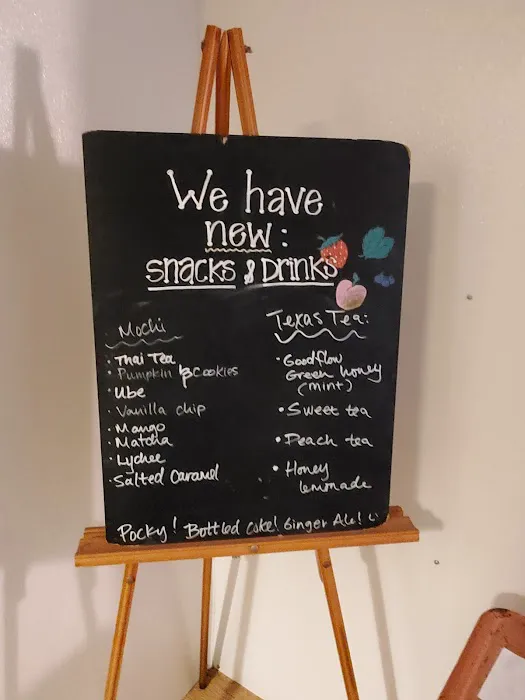 We have
new:
snacks & Drinks
Mochi
· Thai Tea
· Pumpkin & Cookies
· Ube
· Vanilla chip
· Mango
· Matcha
· Lychee
· Salted Caramel
Texas Tea:
· Goodflow
Green honey
(mint)
· Sweet tea
· Peach tea
· Honey
lemonade
Pocky! Bottled coke! Ginger Ale!